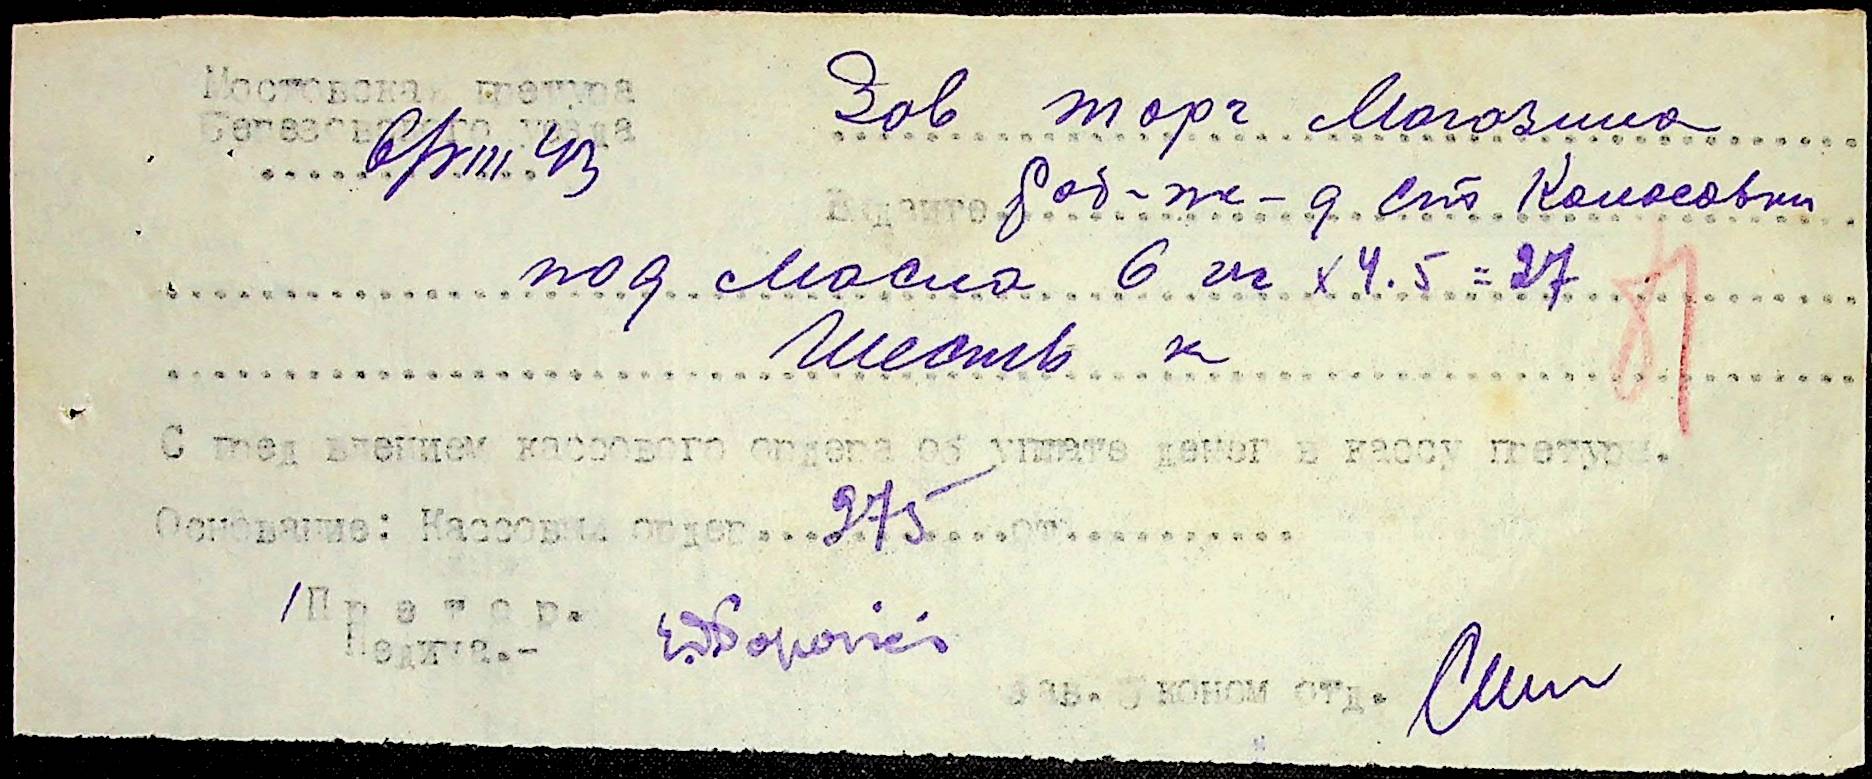 Мостовская претура
Березовского уезда
6/VIII 43
Зав торг Магазина
Выдайте раб-ж-д ст Колосовки
под Масла 6 кг х 4.5 = 27
Шесть к
С пред влением кассового ордера об уплате денег в кассу претуры.
Основание: Кассовый ордер 275 от
/Претор.
Педжиа.-
Зав. Эконом отд.